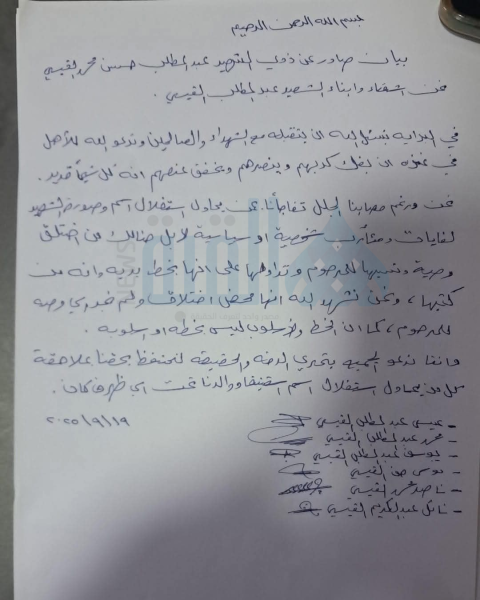 بسم الله الرحمن الرحيم
بيان صادر عن ذوي الشهيد عبد المطلب حسن محمد القيسي
نحن اشقاء وابناء الشهيد عبد المطلب القيسي .
في البداية نسئل الله ان يتقبله مع الشهداء والصالحين وندعو الله للأهل
في غزه ان يفك كربهم وينصرهم ويخفف عنهم انه على شيء قدير .
نحن ورغم مصابنا الجلل تفاجأنا من يحاول استغلال اسم وصورة الشهيد
لغايات ومآرب شخصية او سياسية لا بل هنالك من اختلق
وصية ونسبها للمرحوم وتداولها على انها بخط يده وانه من
كتبها ، ونحن نشهد الله انها محض اختلاق ولم نجد اي وصيه
للمرحوم ، كما ان الخط والاسلوب ليس بخطه او اسلوبه .
واننا ندعو الجميع بتحري الدقه والحقيقه لنحتفظ بحقنا بملاحقة
كل من يحاول استغلال اسم شقيقنا ووالدنا تحت اي ظرف كان .
٢٠٢٥/٩/١٩
- عيسى عبد المطلب القيسي
- محمد عبد المطلب القيسي
- يوسف عبد المطلب القيسي
- موسى القيسي
- ناصر محمد القيسي
- نائل عبد الكريم القيسي
NEWS